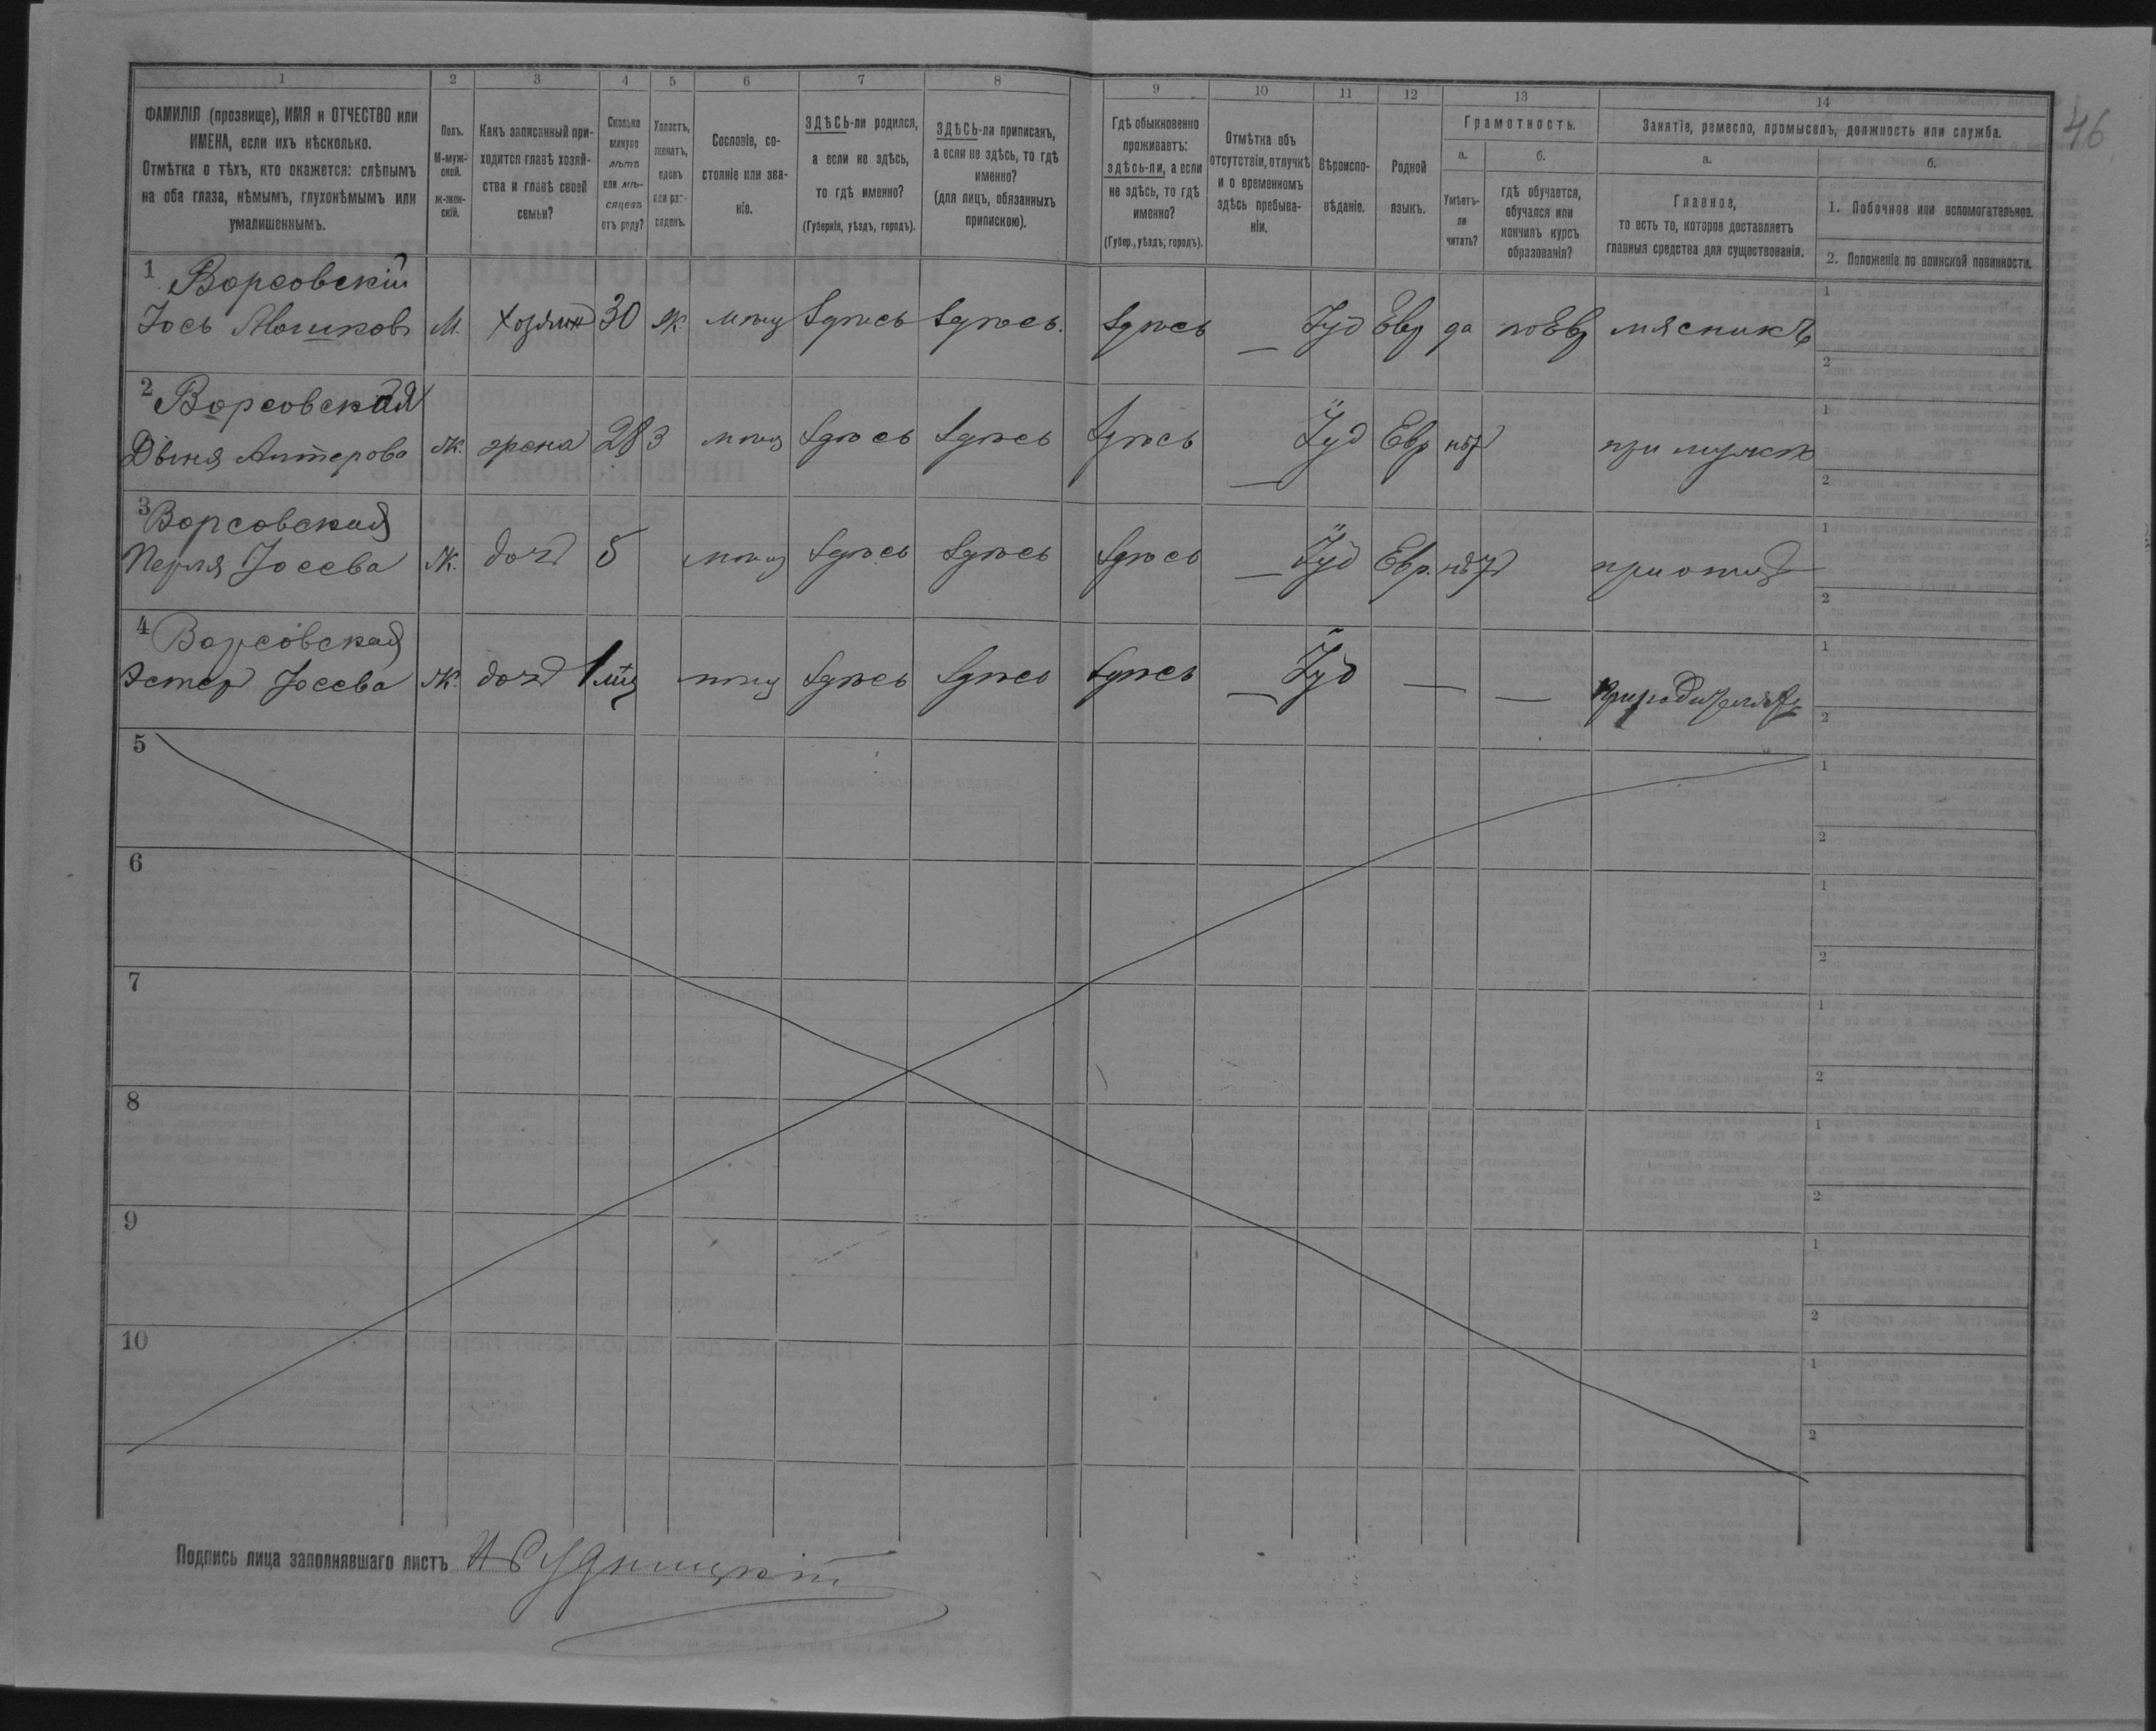 46
1 2 3 4 5 6 7 8 9 10 11 12 13 14
ФАМИЛІЯ (прозвище), ИМЯ и ОТЧЕСТВО или
ИМЕНА, если ихъ нѣсколько.
Отмѣтка о тѣхъ, кто окажется: слѣпымъ
на оба глаза, нѣмымъ, глухонѣмымъ или
умалишеннымъ.
Полъ.
М-муж-
ской.
ж-жен-
скій.
Какъ записанный при-
ходится главѣ хозяй-
ства и главѣ своей
семьи?
Сколько
минуло
лѣтъ
или мѣ-
сяцевъ
отъ роду?
Холостъ,
женатъ,
вдовъ
или раз-
веденъ.
Сословіе, со-
стояніе или зва-
ніе.
ЗДѢСЬ-ли родился,
а если не здѣсь,
то гдѣ именно?
(Губернія, уѣздъ, городъ).
ЗДѢСЬ-ли приписанъ,
а если не здѣсь, то гдѣ
именно?
(для лицъ, обязанныхъ
припискою).
Гдѣ обыкновенно
проживаетъ:
здѣсь-ли, а если
не здѣсь, то гдѣ
именно?
(Губер., уѣздъ, городъ).
Отмѣтка объ
отсутствіи, отлучкѣ
и о временномъ
здѣсь пребыва-
ніи.
Вѣроиспо-
вѣданіе.
Родной
языкъ.
Грамотность.
а.
Умѣетъ-
ли
читать?
б.
гдѣ обучается,
обучался или
кончилъ курсъ
образованія?
Занятіе, ремесло, промыселъ, должность или служба.
а.
Главное,
то есть то, которое доставляетъ
главныя средства для существованія.
б.
1. Побочное или вспомогательное.
2. Положеніе по воинской повинности.
1 Ворсовскій
Іось Мошковъ М. хозяинъ 30 Ж. мѣщ Здѣсь Здѣсь. Здѣсь — Іуд Евр да по Евр мясникъ
1
2
2 Ворсовская
Двыня Алтерова Ж. жена 28 З мѣщ Здѣсь Здѣсь Здѣсь — Іуд Евр нѣт при мужѣ
1
2
3 Ворсовская
Перля Іосева Ж. дочь 5 мѣщ Здѣсь Здѣсь Здѣсь — Іуд Евр. нѣт при отцѣ
1
2
4 Ворсовская
Эстеръ Іосева Ж. дочь 1 мѣщ Здѣсь Здѣсь Здѣсь — Іуд — — При родителяхъ
1
2
5
1
2
6
1
2
7
1
2
8
1
2
9
1
2
10
1
2
Подпись лица заполнявшаго листъ